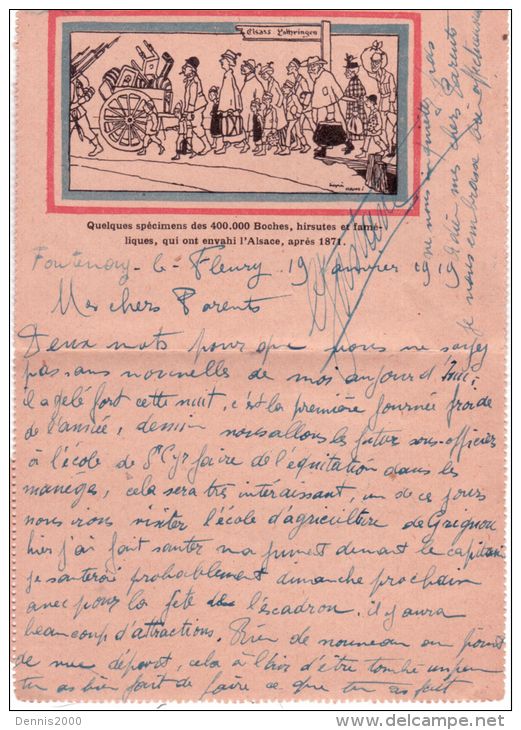 Elsass Lothringen
Quelques spécimens des 400.000 Boches, hirsutes et famé-
liques, qui ont envahi l'Alsace, après 1871.
Fontenay-le-Fleury 19 Janvier 1919
Mes chers Parents
Deux mots pour que vous ne soyez
pas sans nouvelles de moi aujourd'hui;
il a gelé fort cette nuit, c'est la première journée froide
de l'année, demain nous allons les futurs sous-officiers
à l'école de St Cyr faire de l'équitation dans les
manèges, cela sera très intéressant, un de ces jours
nous irons visiter l'école d'agriculture de Grignon
hier j'ai fait sauter ma jument devant le capitaine
je sauterai probablement dimanche prochain
avec pour la fête de l'escadron, il y aura
beaucoup d'attractions. Rien de nouveau au point
de vue départ, cela à l'air d'être tombé un peu
tu as bien fait de faire ce que tu as fait
ne nous quitte pas
Adieu mes chers Parents
je vous embrasse bien affectueusement
Dennis2000
www.delcampe.net